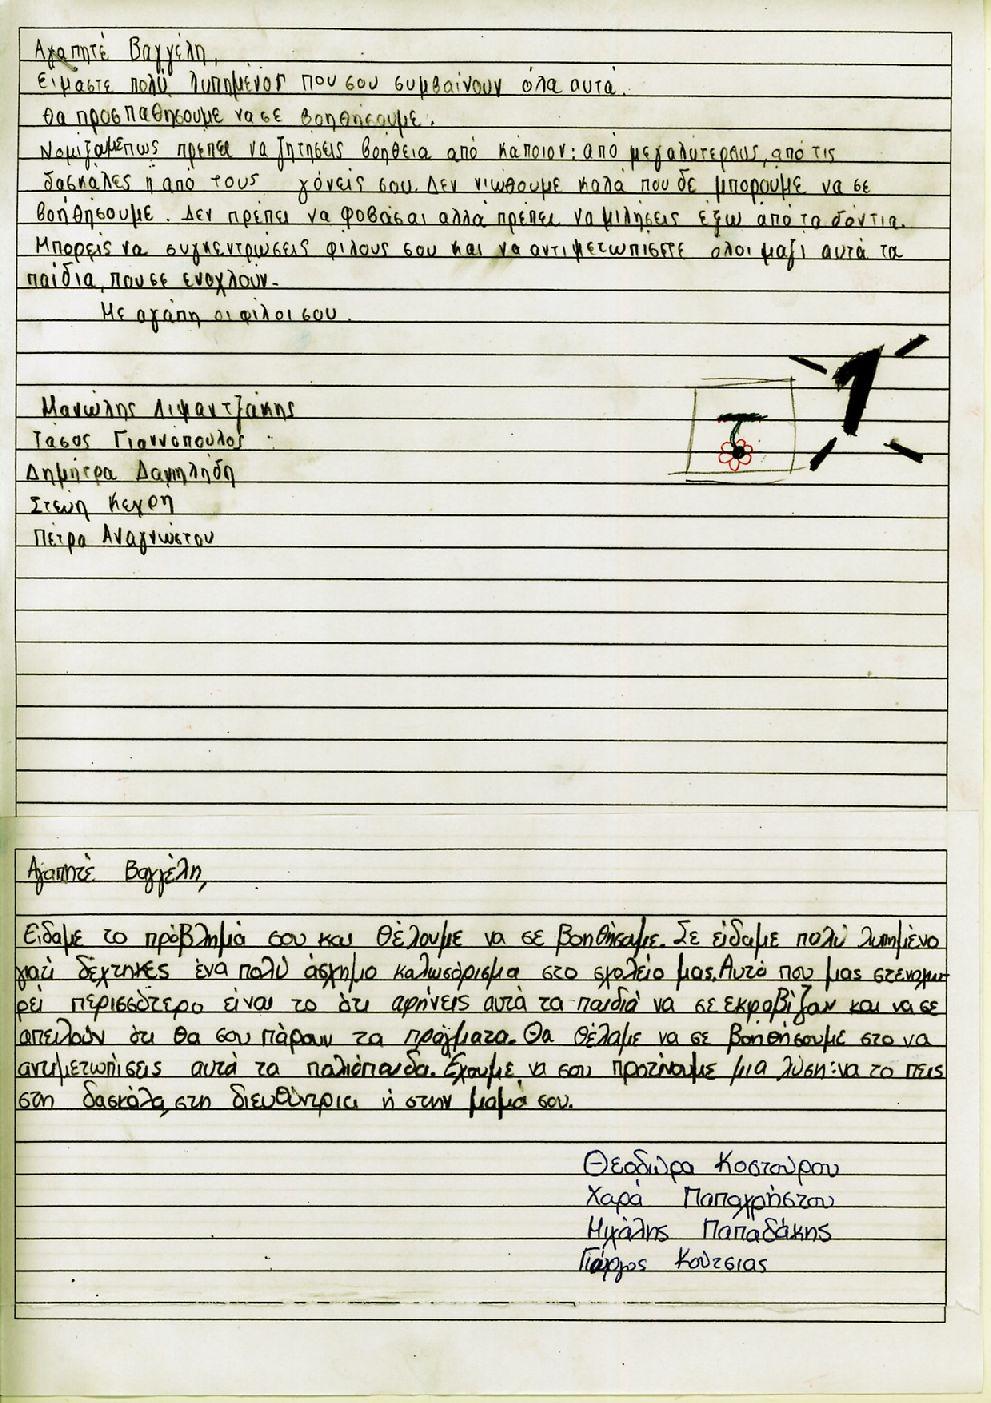 Αγαπητέ Βαγγέλη,
Είμαστε πολύ λυπημένοι που σου συμβαίνουν όλα αυτά.
Θα προσπαθήσουμε να σε βοηθήσουμε.
Νομίζαμε πως πρέπει να ζητήσεις βοήθεια από κάποιον: από μεγαλύτερους, από τις
δασκάλες ή από τους γονείς σου. Δεν νιώθουμε καλά που δε μπορούμε να σε
βοηθήσουμε. Δεν πρέπει να φοβάσαι αλλά πρέπει να μιλήσεις έξω από τα δόντια.
Μπορείς να συγκεντρώσεις φίλους σου και να αντιμετωπίσετε όλοι μαζί αυτά τα
παιδια, που σε ενοχλούν.
Με αγάπη οι φίλοι σου.
1
Μανώλης Λιψαντζάκης
Τάσος Γιαννόπουλος
Δημήτρα
Στεύη Κεχρή
Πέτρα Αναγνώστου
Αγαπητέ Βαγγέλη,
Είδαμε το πρόβλημά σου και θέλουμε να σε βοηθήσαμε. Σε είδαμε πολύ λυπημένο
γιατί δέχτηκες ένα πολύ άσχημο καλωσόρισμα στο σχολείο μας. Αυτό που μας στεναχω-
ρεί περισσότερο είναι το ότι αφήνεις αυτά τα παιδιά να σε εκφοβίζαν και να σε
απειλούν ότι θα σου πάρουν τα πράγματα. Θα θέλαμε να σε βοηθήσουμε στο να
αντιμετωπίσεις αυτά τα παλιόπαιδα. Έχουμε να σου προτείνουμε μια λύση: να το πεις
στη δασκάλα, στη διευθύντρια ή στην μαμά σου.
Θεοδώρα Κοστούρου
Χαρά Παπαχρήστου
Μιχάλης Παπαδάκης
Γιώργος Κούτσιας